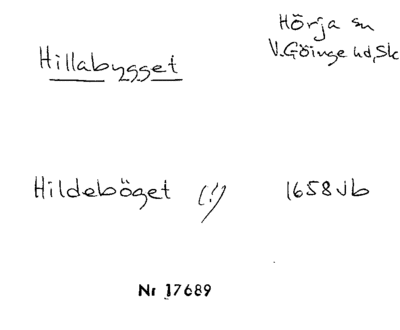 Hillabygget
Hörja sn
V.Göinge hd, Sk
Hildeböget (!) 1658 Jb
Nr 17689